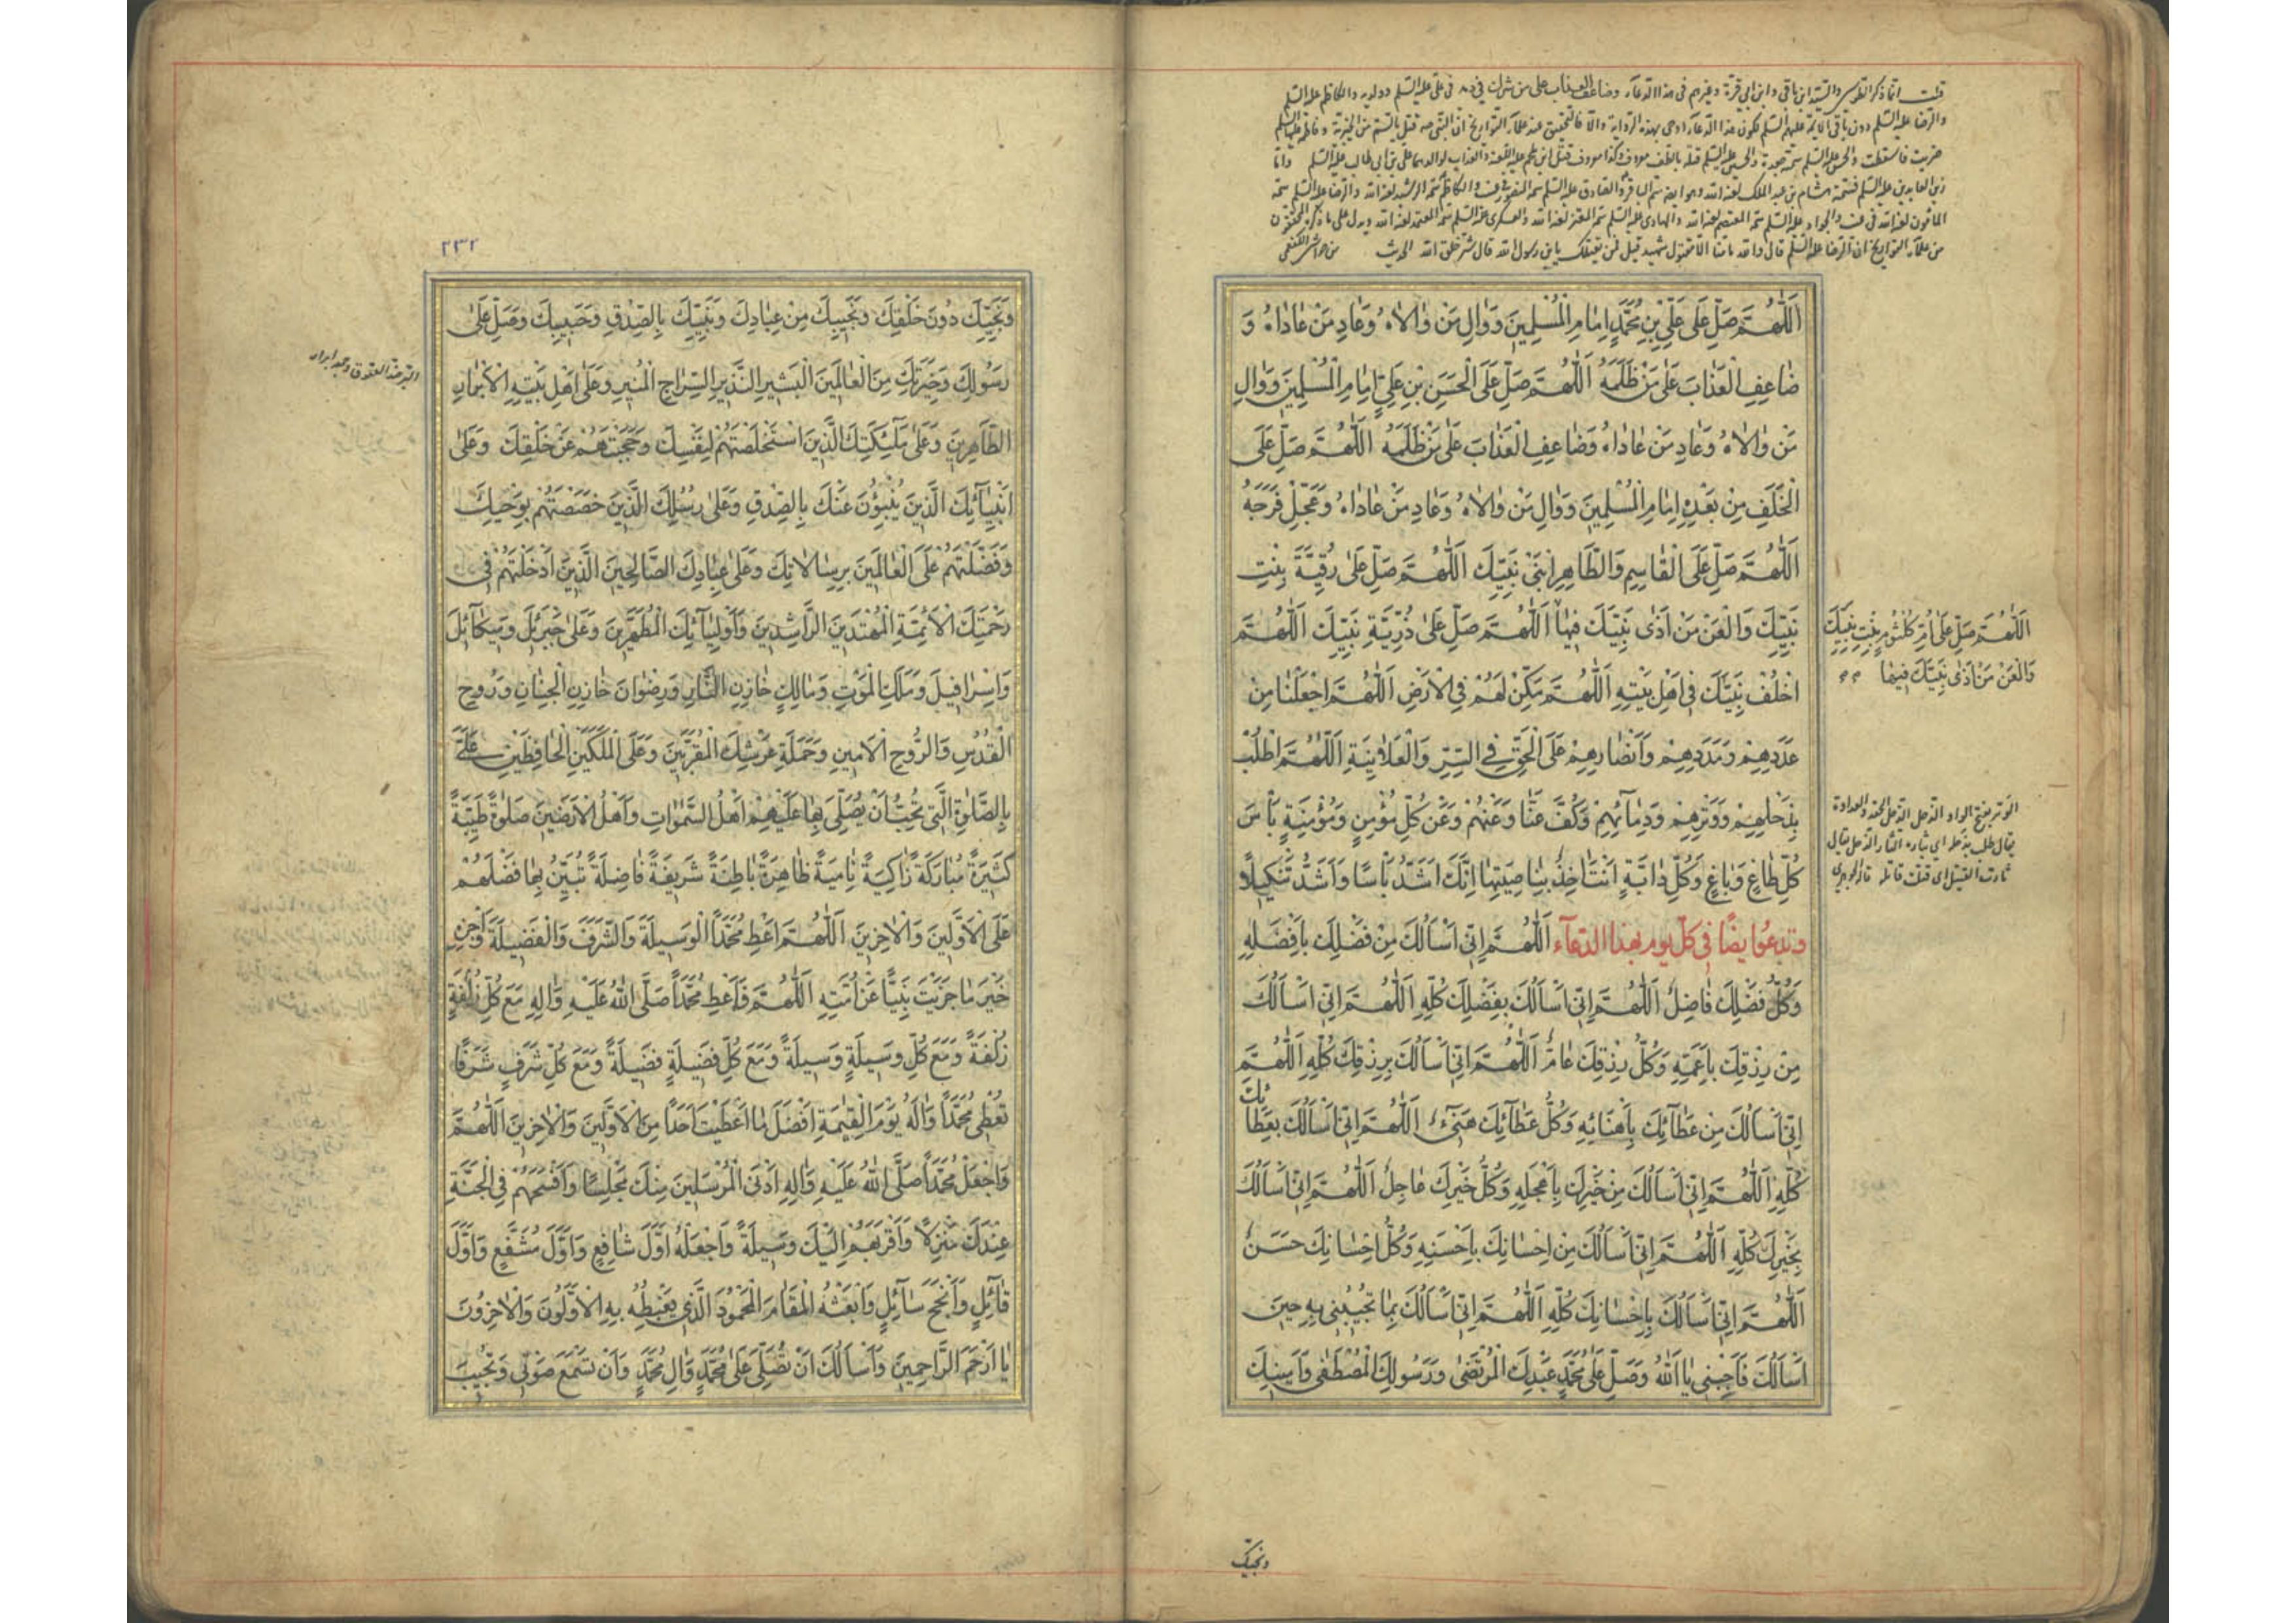 قلت انما ذكر الطوسي والسيد ابن باقي وابن ابي قرة وغيرهم في هذا الدعآء وضاعف العذاب على من شرك في دمه في علي عليه السلم وولديه والكاظم عليه السلم
والرضا عليه السلم دون باقي الائمة عليهم السلم لكون هذا الدعآء اوحي بهذه الرواية والا فالتحقيق عند علمآء التواريخ ان النبي صه قتل بالسم من الخيبرية وفاطمة عليها السلم
ضربت فاسقطت والحسن عليه السلم سمته جعدة والحسين عليه السلم قتله بالطف معروف وكذا معروف قتل ابن ملجم عليه اللعنة والعذاب لوالدهما علي بن ابي طالب عليه السلم واما
زين العابدين عليه السلم فسمه هشام بن عبد الملك لعنه الله وهو ايضا سم الباقر والصادق عليه السلم سمه المنصور لعنه الله والكاظم سمه الرشيد لعنه الله والرضا عليه السلم سمه
المامون لعنه الله والجواد عليه السلم سمه المعتصم لعنه الله والهادي عليه السلم سمه المعتز لعنه الله والعسكري عليه السلم سمه المعتمد لعنه الله ويدل على ما ذكره المحققون
من علمآء التواريخ ان الرضا عليه السلم قال والله ما منا الا مقتول شهيد قيل فمن يقتلك يابن رسول الله قال شر خلق الله الحديث من حواشي الكفعمي
اَللّٰهُمَّ صَلِّ عَلٰى عَلِيِّ بْنِ مُحَمَّدٍ اِمَامِ الْمُسْلِمِينَ وَوَالِ مَنْ وَالَاهُ وَعَادِ مَنْ عَادَاهُ وَ
ضَاعِفِ الْعَذَابَ عَلٰى مَنْ ظَلَمَهُ اَللّٰهُمَّ صَلِّ عَلَى الْحَسَنِ بْنِ عَلِيٍّ اِمَامِ الْمُسْلِمِينَ وَوَالِ
مَنْ وَالَاهُ وَعَادِ مَنْ عَادَاهُ وَضَاعِفِ الْعَذَابَ عَلٰى مَنْ ظَلَمَهُ اَللّٰهُمَّ صَلِّ عَلَى
الْخَلَفِ مِنْ بَعْدِهِ اِمَامِ الْمُسْلِمِينَ وَوَالِ مَنْ وَالَاهُ وَعَادِ مَنْ عَادَاهُ وَعَجِّلْ فَرَجَهُ
اَللّٰهُمَّ صَلِّ عَلَى الْقَاسِمِ وَالطَّاهِرِ ابْنَيْ نَبِيِّكَ اَللّٰهُمَّ صَلِّ عَلٰى رُقَيَّةَ بِنْتِ
نَبِيِّكَ وَالْعَنْ مَنْ اَذٰى نَبِيَّكَ فِيهَا اَللّٰهُمَّ صَلِّ عَلٰى ذُرِّيَّةِ نَبِيِّكَ اَللّٰهُمَّ
اَللّٰهُمَّ صَلِّ عَلٰى اُمِّ كُلْثُومٍ بِنْتِ نَبِيِّكَ
وَالْعَنْ مَنْ اَذٰى نَبِيَّكَ فِيهَا
اخْلُفْ نَبِيَّكَ فِي اَهْلِ بَيْتِهِ اَللّٰهُمَّ مَكِّنْ لَهُمْ فِي الْاَرْضِ اَللّٰهُمَّ اجْعَلْنَا مِنْ
عَدَدِهِمْ وَمَدَدِهِمْ وَاَنْصَارِهِمْ عَلَى الْحَقِّ فِي السِّرِّ وَالْعَلَانِيَةِ اَللّٰهُمَّ اطْلُبْ
بِذَحْلِهِمْ وَوَتْرِهِمْ وَدِمَآئِهِمْ وَكُفَّ عَنَّا وَعَنْهُمْ وَعَنْ كُلِّ مُؤْمِنٍ وَمُؤْمِنَةٍ بَأْسَ
الوتر بفتح الواو الذحل الذحل الحقد والعداوة
يقال طلب بذحله اي بثاره الثار الذحل يقال
ثارت القتيل اي قتلت قاتله قاله الجوهري
كُلِّ طَاغٍ وَبَاغٍ وَكُلِّ دَابَّةٍ اَنْتَ اٰخِذٌ بِنَاصِيَتِهَا اِنَّكَ اَشَدُّ بَأْسًا وَاَشَدُّ تَنْكِيلًا
وتدعوا ايضًا في كل يوم بهذا الدعآء اَللّٰهُمَّ اِنِّي اَسْاَلُكَ مِنْ فَضْلِكَ بِاَفْضَلِهِ
وَكُلُّ فَضْلِكَ فَاضِلٌ اَللّٰهُمَّ اِنِّي اَسْاَلُكَ بِفَضْلِكَ كُلِّهِ اَللّٰهُمَّ اِنِّي اَسْاَلُكَ
مِنْ رِزْقِكَ بِاَعَمِّهِ وَكُلُّ رِزْقِكَ عَامٌّ اَللّٰهُمَّ اِنِّي اَسْاَلُكَ بِرِزْقِكَ كُلِّهِ اَللّٰهُمَّ
اِنِّي اَسْاَلُكَ مِنْ عَطَآئِكَ بِاَهْنَائِهِ وَكُلُّ عَطَآئِكَ هَنِيٓءٌ اَللّٰهُمَّ اِنِّي اَسْاَلُكَ بِعَطَائِكَ
كُلِّهِ اَللّٰهُمَّ اِنِّي اَسْاَلُكَ مِنْ خَيْرِكَ بِاَعْجَلِهِ وَكُلُّ خَيْرِكَ عَاجِلٌ اَللّٰهُمَّ اِنِّي اَسْاَلُكَ
بِخَيْرِكَ كُلِّهِ اَللّٰهُمَّ اِنِّي اَسْاَلُكَ مِنْ اِحْسَانِكَ بِاَحْسَنِهِ وَكُلُّ اِحْسَانِكَ حَسَنٌ
اَللّٰهُمَّ اِنِّي اَسْاَلُكَ بِاِحْسَانِكَ كُلِّهِ اَللّٰهُمَّ اِنِّي اَسْاَلُكَ بِمَا تُجِيبُنِي بِهِ حِينَ
اَسْاَلُكَ فَاَجِبْنِي يَا اَللّٰهُ وَصَلِّ عَلٰى مُحَمَّدٍ عَبْدِكَ الْمُرْتَضٰى وَرَسُولِكَ الْمُصْطَفٰى وَاَمِينِكَ
ونجيك
٢٣٢
وَنَجِيِّكَ دُونَ خَلْقِكَ وَنَجِيبِكَ مِنْ عِبَادِكَ وَنَبِيِّكَ بِالصِّدْقِ وَحَبِيبِكَ وَصَلِّ عَلٰى
رَسُولِكَ وَخِيَرَتِكَ مِنَ الْعَالَمِينَ الْبَشِيرِ النَّذِيرِ السِّرَاجِ الْمُنِيرِ وَعَلٰى اَهْلِ بَيْتِهِ الْاَبْرَارِ
البر ضد العقوق وجمعه ابرار
الطَّاهِرِينَ وَعَلٰى مَلٰٓئِكَتِكَ الَّذِينَ اسْتَخْلَصْتَهُمْ لِنَفْسِكَ وَحَجَبْتَهُمْ عَنْ خَلْقِكَ وَعَلٰى
اَنْبِيَآئِكَ الَّذِينَ يُنْبِؤُنَ عَنْكَ بِالصِّدْقِ وَعَلٰى رُسُلِكَ الَّذِينَ خَصَصْتَهُمْ بِوَحْيِكَ
وَفَضَّلْتَهُمْ عَلَى الْعَالَمِينَ بِرِسَالَاتِكَ وَعَلٰى عِبَادِكَ الصَّالِحِينَ الَّذِينَ اَدْخَلْتَهُمْ فِي
رَحْمَتِكَ الْاَئِمَّةِ الْمُهْتَدِينَ الرَّاشِدِينَ وَاَوْلِيَآئِكَ الْمُطَهَّرِينَ وَعَلٰى جَبْرَئِلَ وَمِيكَآئِلَ
وَاِسْرَافِيلَ وَمَلَكِ الْمَوْتِ وَمَالِكٍ خَازِنِ النَّارِ وَرِضْوَانَ خَازِنِ الْجِنَانِ وَرُوحِ
الْقُدُسِ وَالرُّوحِ الْاَمِينِ وَحَمَلَةِ عَرْشِكَ الْمُقَرَّبِينَ وَعَلَى الْمَلَكَيْنِ الْحَافِظَيْنِ عَلَيَّ
بِالصَّلٰوةِ الَّتِي تُحِبُّ اَنْ يُصَلِّيَ بِهَا عَلَيْهِمْ اَهْلُ السَّمٰوَاتِ وَاَهْلُ الْاَرَضِينَ صَلٰوةً طَيِّبَةً
كَثِيرَةً مُبَارَكَةً زَاكِيَةً نَامِيَةً ظَاهِرَةً بَاطِنَةً شَرِيفَةً فَاضِلَةً تُبَيِّنُ بِهَا فَضْلَهُمْ
عَلَى الْاَوَّلِينَ وَالْاٰخِرِينَ اَللّٰهُمَّ اَعْطِ مُحَمَّدًا الْوَسِيلَةَ وَالشَّرَفَ وَالْفَضِيلَةَ وَاَجْزِهِ
خَيْرَ مَا جَزَيْتَ نَبِيًّا عَنْ اُمَّتِهِ اَللّٰهُمَّ فَاَعْطِ مُحَمَّدًا صَلَّى اللّٰهُ عَلَيْهِ وَاٰلِهِ مَعَ كُلِّ زُلْفَةٍ
زُلْفَةً وَمَعَ كُلِّ وَسِيلَةٍ وَسِيلَةً وَمَعَ كُلِّ فَضِيلَةٍ فَضِيلَةً وَمَعَ كُلِّ شَرَفٍ شَرَفًا
تُعْطِي مُحَمَّدًا وَاٰلَهُ يَوْمَ الْقِيٰمَةِ اَفْضَلَ مَا اَعْطَيْتَ اَحَدًا مِنَ الْاَوَّلِينَ وَالْاٰخِرِينَ اَللّٰهُمَّ
وَاجْعَلْ مُحَمَّدًا صَلَّى اللّٰهُ عَلَيْهِ وَاٰلِهِ اَدْنَى الْمُرْسَلِينَ مِنْكَ مَجْلِسًا وَاَفْسَحَهُمْ فِي الْجَنَّةِ
عِنْدَكَ مَنْزِلًا وَاَقْرَبَهُمْ اِلَيْكَ وَسِيلَةً وَاجْعَلْهُ اَوَّلَ شَافِعٍ وَاَوَّلَ مُشَفَّعٍ وَاَوَّلَ
قَآئِلٍ وَاَنْجَحَ سَآئِلٍ وَابْعَثْهُ الْمَقَامَ الْمَحْمُودَ الَّذِي يَغْبِطُهُ بِهِ الْاَوَّلُونَ وَالْاٰخِرُونَ
يَا اَرْحَمَ الرَّاحِمِينَ وَاَسْاَلُكَ اَنْ تُصَلِّيَ عَلٰى مُحَمَّدٍ وَاٰلِ مُحَمَّدٍ وَاَنْ تَسْمَعَ صَوْتِي وَتُجِيبَ